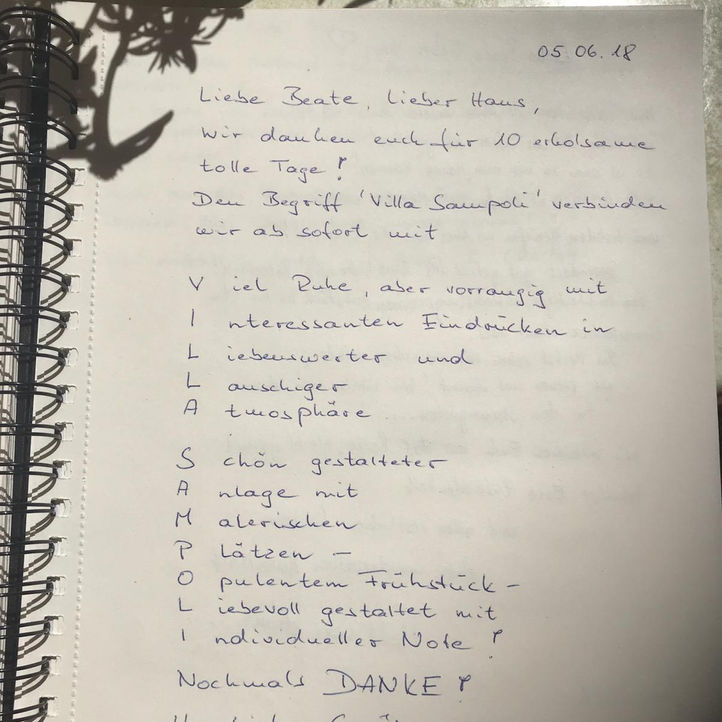 05.06.18
Liebe Beate, lieber Hans,
wir danken euch für 10 erholsame
tolle Tage!
Den Begriff 'Villa Sampoli' verbinden
wir ab sofort mit
V iel Ruhe, aber vorrangig mit
I nteressanten Eindrücken in
L iebenswerter und
L auschiger
A tmosphäre
S chön gestalteter
A nlage mit
M alerischen
P lätzen –
O pulentem Frühstück –
L iebevoll gestaltet mit
I ndividueller Note!
Nochmals DANKE!